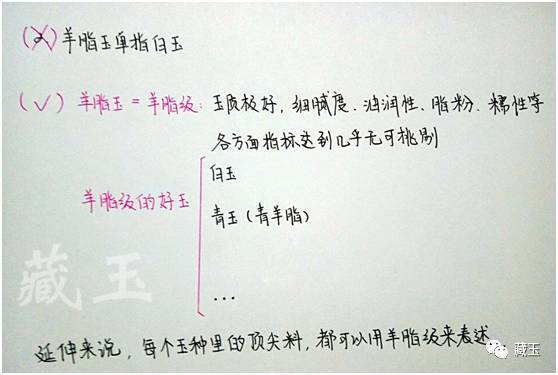 (×) 羊脂玉单指白玉
(√) 羊脂玉=羊脂级: 玉质极好, 细腻度、油润性、脂粉、糯性等
各方面指标达到几乎无可挑剔
羊脂级的好玉
白玉
青玉(青羊脂)
...
藏玉
延伸来说, 每个玉种里的顶尖料, 都可以用羊脂级来表述
藏玉